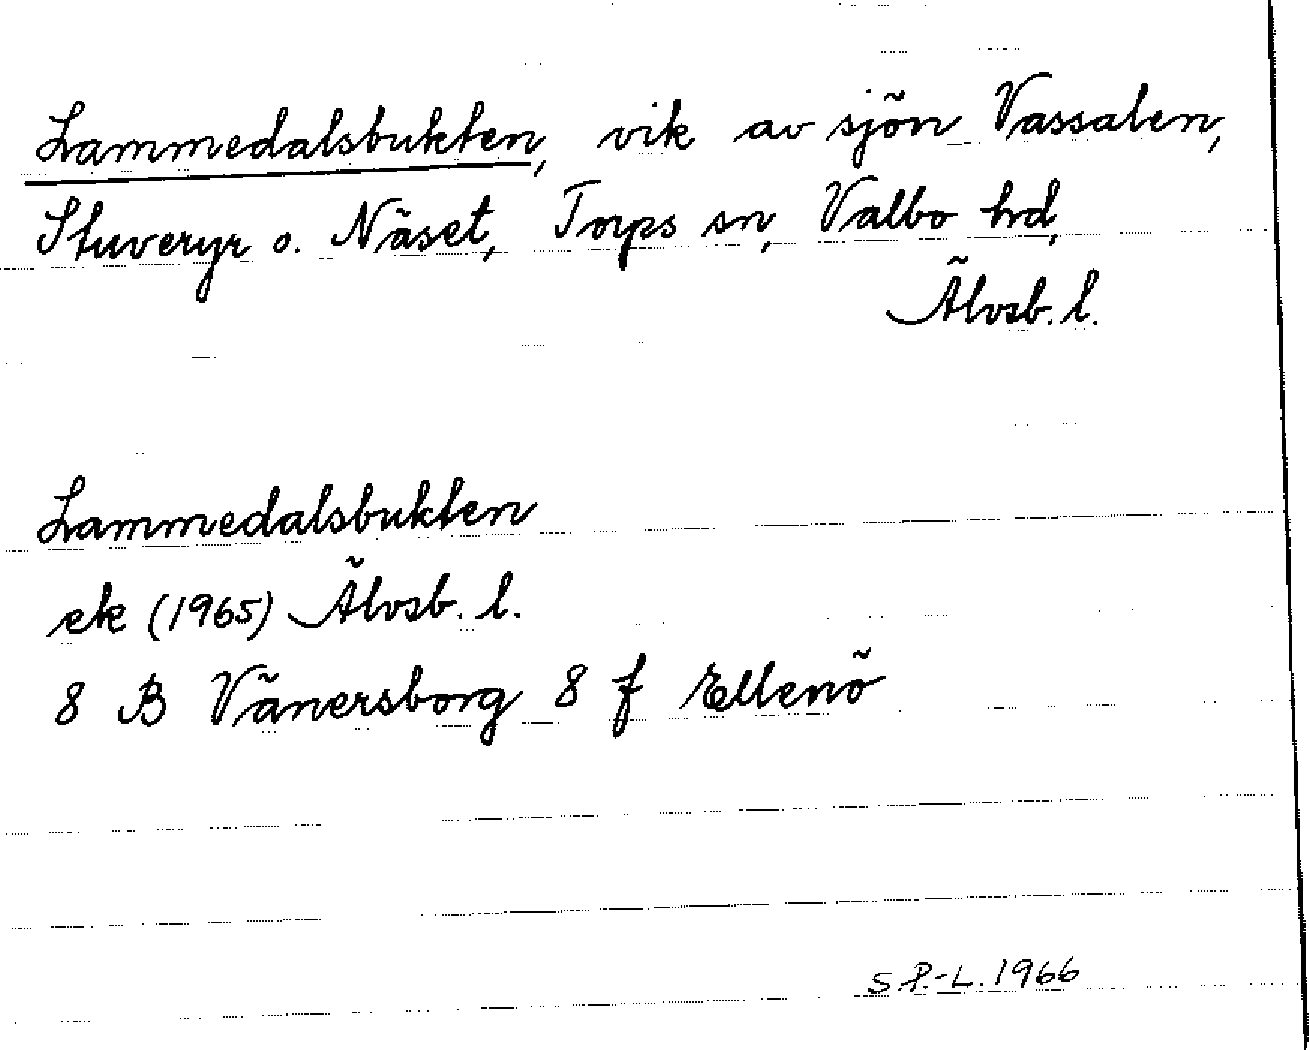 Lammedalsbukten, vik av sjön Vassalen,
Stuveryr o. Näset, Torps sn, Valbo hd,
Älvsb. l.
Lammedalsbukten
ek (1965) Älvsb. l.
8 B Vänersborg 8 f Ellenö
S.P.-L. 1966